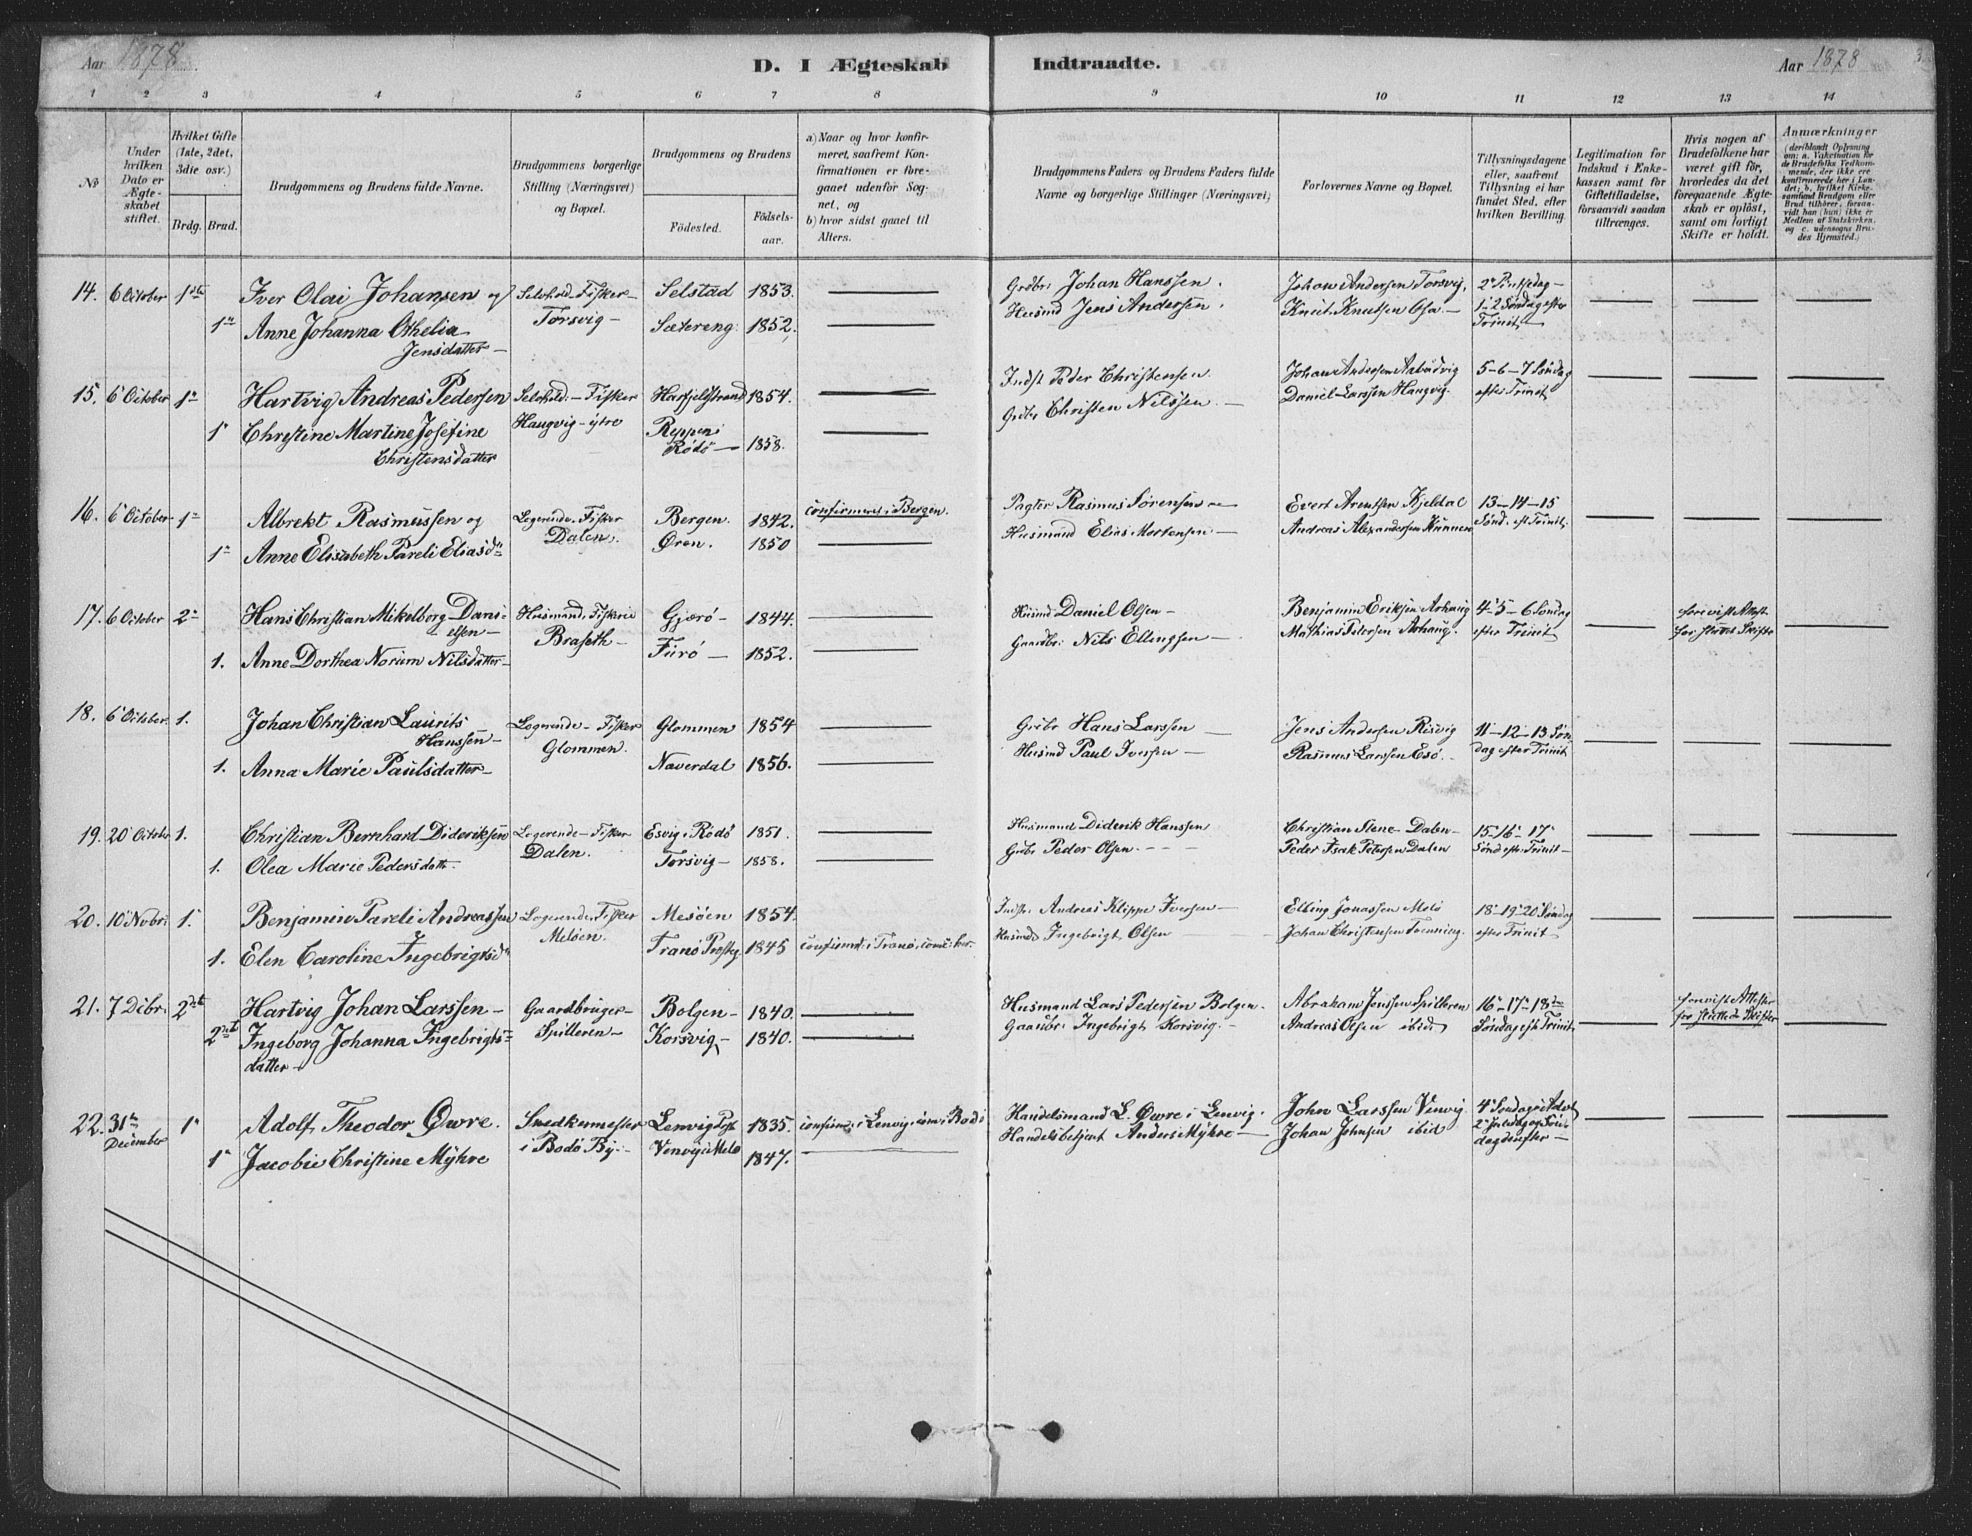 Aar 1878. D. I Ægteskab Indtraadte. Aar 1878
1 2 3 4 5 6 7 8 9 10 11 12 13 14
No
Under hvilken Dato er Ægteskabet stiftet.
Hvilket Gifte (1ste, 2det, 3die osv.)
Brdg. Brud.
Brudgommens og Brudens fulde Navne.
Brudgommens borgerlige Stilling (Næringsvei) og Bopæl.
Brudgommens og Brudens
Fødested. Fødselsaar.
a) Naar og hvor konfirmeret, saafremt Konfirmationen er foregaaet udenfor Sognet, og
b) hvor sidst gaaet til Alters.
Brudgommens Faders og Brudens Faders fulde Navne og borgerlige Stillinger (Næringsvei)
Forlovernes Navne og Bopæl.
Tillysningsdagene eller, saafremt Tillysning ei har fundet Sted, efter hvilken Bevilling.
Legitimation for Indskud i Enkekassen samt for Giftetilladelse, forsaavidt saadan tiltrænges.
Hvis nogen af Brudefolkene har været gift før, hvorledes da det foregaaende Ægteskab er opløst, samt om lovligt Skifte er holdt.
Anmærkninger (deriblandt Oplysning om: a. Vaksination for de Brudefolks Vedkommende, der ikke ere konfirmerede her i Landet; b. hvilket Kirkesamfund Brudgom eller Brud tilhører, forsaavidt han (hun) ikke er Medlem af Statskirken, og c. udensogns Brudes Hjemsted.)
14. 6 October 1ste Iver Olai Johansen og Selvhold. Fisker Selstad 1853. Grdbr. Johan Hanssen. Johan Andersen Torsvig, 2 Pintsedag
1ste Anne Johanna Othelia Torsvig Sætereng 1852. Husmd Jens Andersen Knut Knutsen Osa 1 2 Søndag efter
Jensdatter Trinit.
15. 6 October 1 Hartvig Andreas Pedersen Selvhold. Fisker Harfjelstrand 1854. Indst Peder Christensen Johan Andersen 5-6-7 Søndag
1 Christine Martine Josefine Haugvig ytre Reppen Grdbr Christen Nilssen. Daniel Larssen Haugvig. efter Trinit
Christensdatter Rødø 1858.
16. 6 October 1 Albrekt Rasmussen og Logerende Fisker Bergen. 1842. confirmeret i Bergen. Pagter Rasmus Sørensen Evert Arentsen Kjeldal 13-14-15
1 Anne Elisabeth Pareli Eliasd Dalen. Øren. 1850 Husmand Elias Mortensen Andreas Alexandersen Kunnen Sønd. eft Trinit.
17. 6 October 2 Hans Christian Mikelborg Dani- Husmand, Fisker Gjærø 1844. Husmd Daniel Olsen Benjamin Eriksen Arhaug 4-5-6 Søndag foreviste Attest
elsen Braseth Gaardbr. Nils Ellingsen Mathias Petersen Arhaug. efter Trinit for Skifte
1. Anne Dorthea Norum Nilsdatter Fürö 1852.
18. 6 October. 1. Johan Christian Laurits Logerende Fisker Glommen 1854 Grdbr Hans Larssen Jens Andersen Risvig 11-12-13 Søn
Hanssen Glommen. Husmd Paul Iversen Rasmus Larssen Esø. dag efter Trinit
1. Anna Marie Paulsdatter Naverdal 1856.
19. 20 October 1. Christian Bernhard Dideriksen Logerende Fisker Esvig i Rødø 1851. Husmand Diderik Hanssen Christian Stene Dalen 15-16-17
1. Olea Marie Pedersdatt. Dalen. Torsvig 1858. Grdbr Peder Olsen. Peder Isak Petersen Dalen Sønd eft. Trinit
20. 10 Novbr. 1. Benjamin Pareli Andreassen Logerende, Fisker Mesøen 1854. Indst. Andreas Klippe Iversen Elling Jonassen Melö 18-19-20 Søndag
1. Elen Caroline Ingebrigtsd Meløen. Tranø Prestegj 1845 confirmt i Tranø, comc. her. Husmd Ingebrigt Olsen Johan Christensen efter Trinit
21. 7 Decbr. 2det Hartvig Johan Larssen Gaardbruger Bolgen 1840. Husmand Lars Pedersen Bolgen. Abraham Jenssen Spilleren 16-17-18de foreviste Attester
2det Ingeborg Johanna Ingebrigts- Spilleren Korsvig 1840. Gaardbr. Ingebrigt Korsvig. Andreas Olsen ibid Søndag eft Trinit for Skifter
datter
22. 31te December 1 Adolf Theodor Øwre. Snedkermester Lenvig Pgl 1835. confirm. i Lenvig, com. i Bodö Handelsmand L. Øwre i Lenvig. John Larssen Venvig 4 Søndag i Advt
1 Jacobie Christine Mÿhre i Bodø By. Venvig i Melø 1847. Handelsbetjent Anders Mÿhre Johan Johnsen ibid 2 Juledag og Søn-
dag derefter